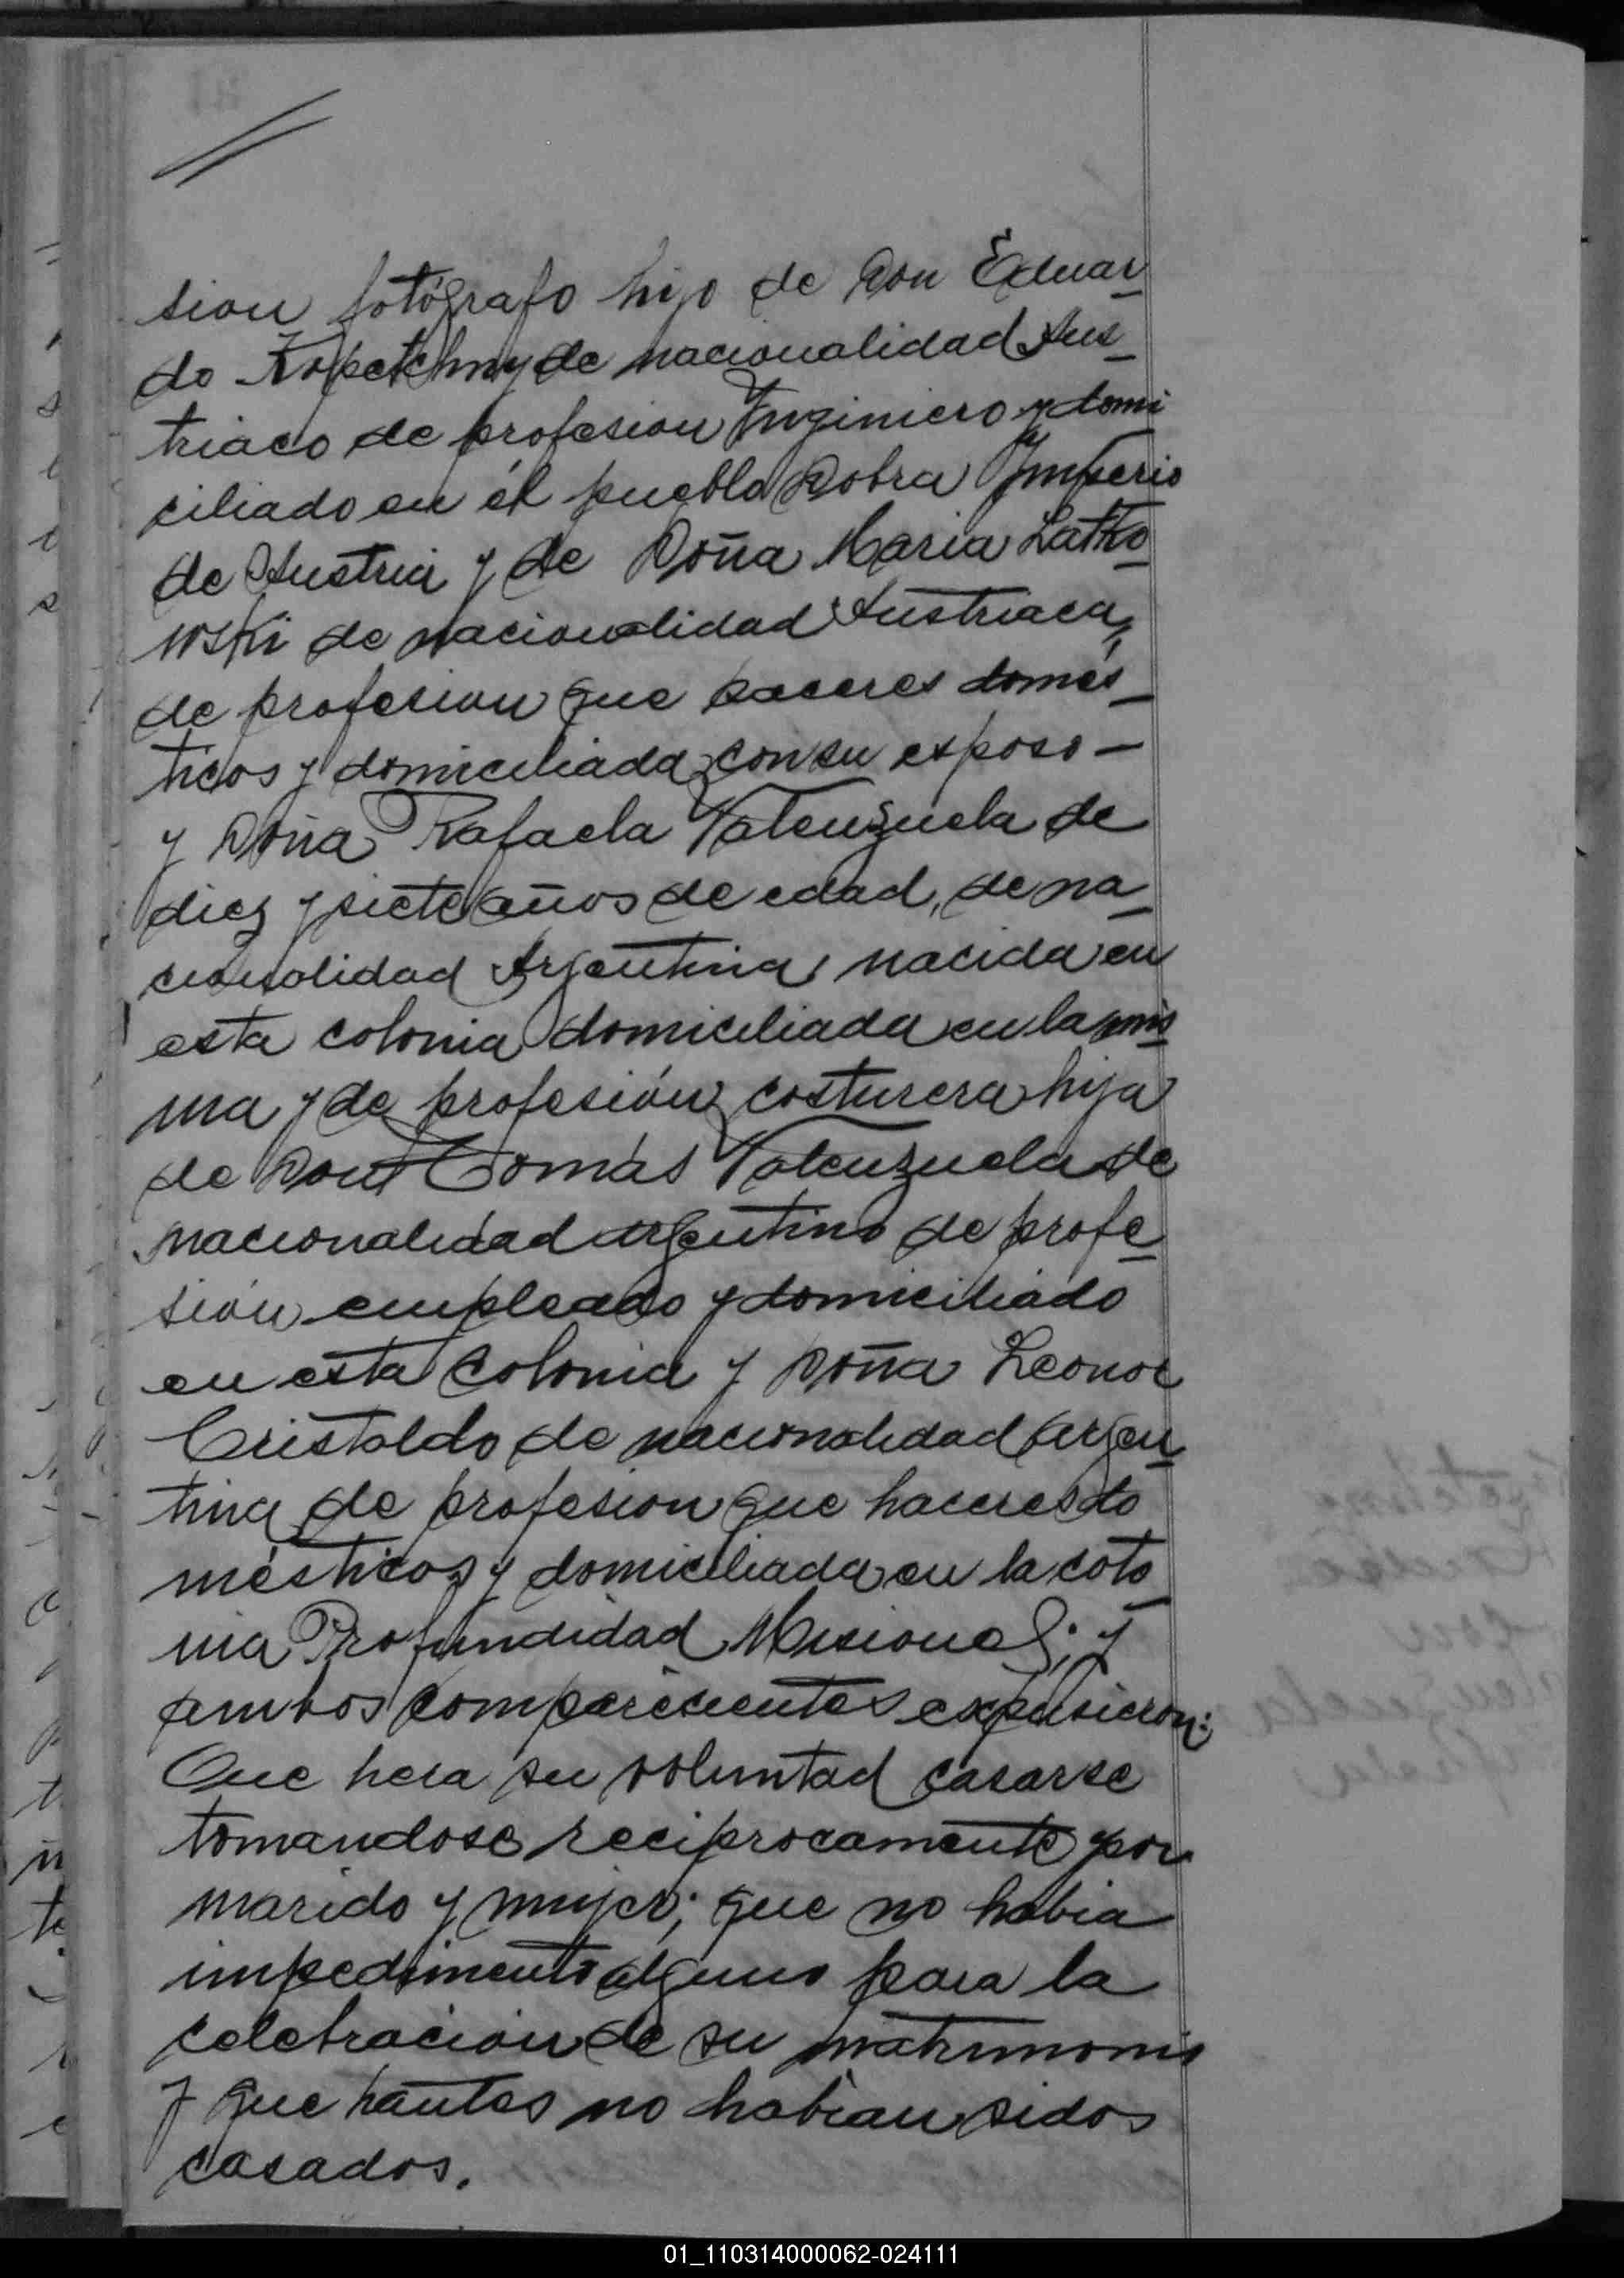 sion fotógrafo hijo de Don Eduar
do Kopetchny de nacionalidad Aus
triaco de profesion Inginiero y domi
ciliado en él pueblo Dobra Imperio
de Austria y de Doña Maria Latko
wski de nacionalidad Austriaca,
de profesion que haceres domés
ticos y domiciliada con su esposo —
y Doña Rafaela Valenzuela de
diez y siete años de edad, de na
cionalidad Argentina, nacida en
esta colonia domiciliada en la mis
ma y de profesión costurera hija
de Don Tomás Valenzuela de
nacionalidad argentino de profe
sión empleado y domiciliado
en esta Colonia y Doña Leonor
Cristaldo de nacionalidad argen
tina de profesion que haceres do
mésticos y domiciliada en la colo
nia Profundidad Misiones; y
ambos comparecientes expusieron:
Que hera su voluntad casarse
tomandose reciprocamente por
marido y mujer; que no habia
impedimento alguno para la
celebracion de su matrimonio
y que hantes no habian sidos
casados.
01_110314000062-024111